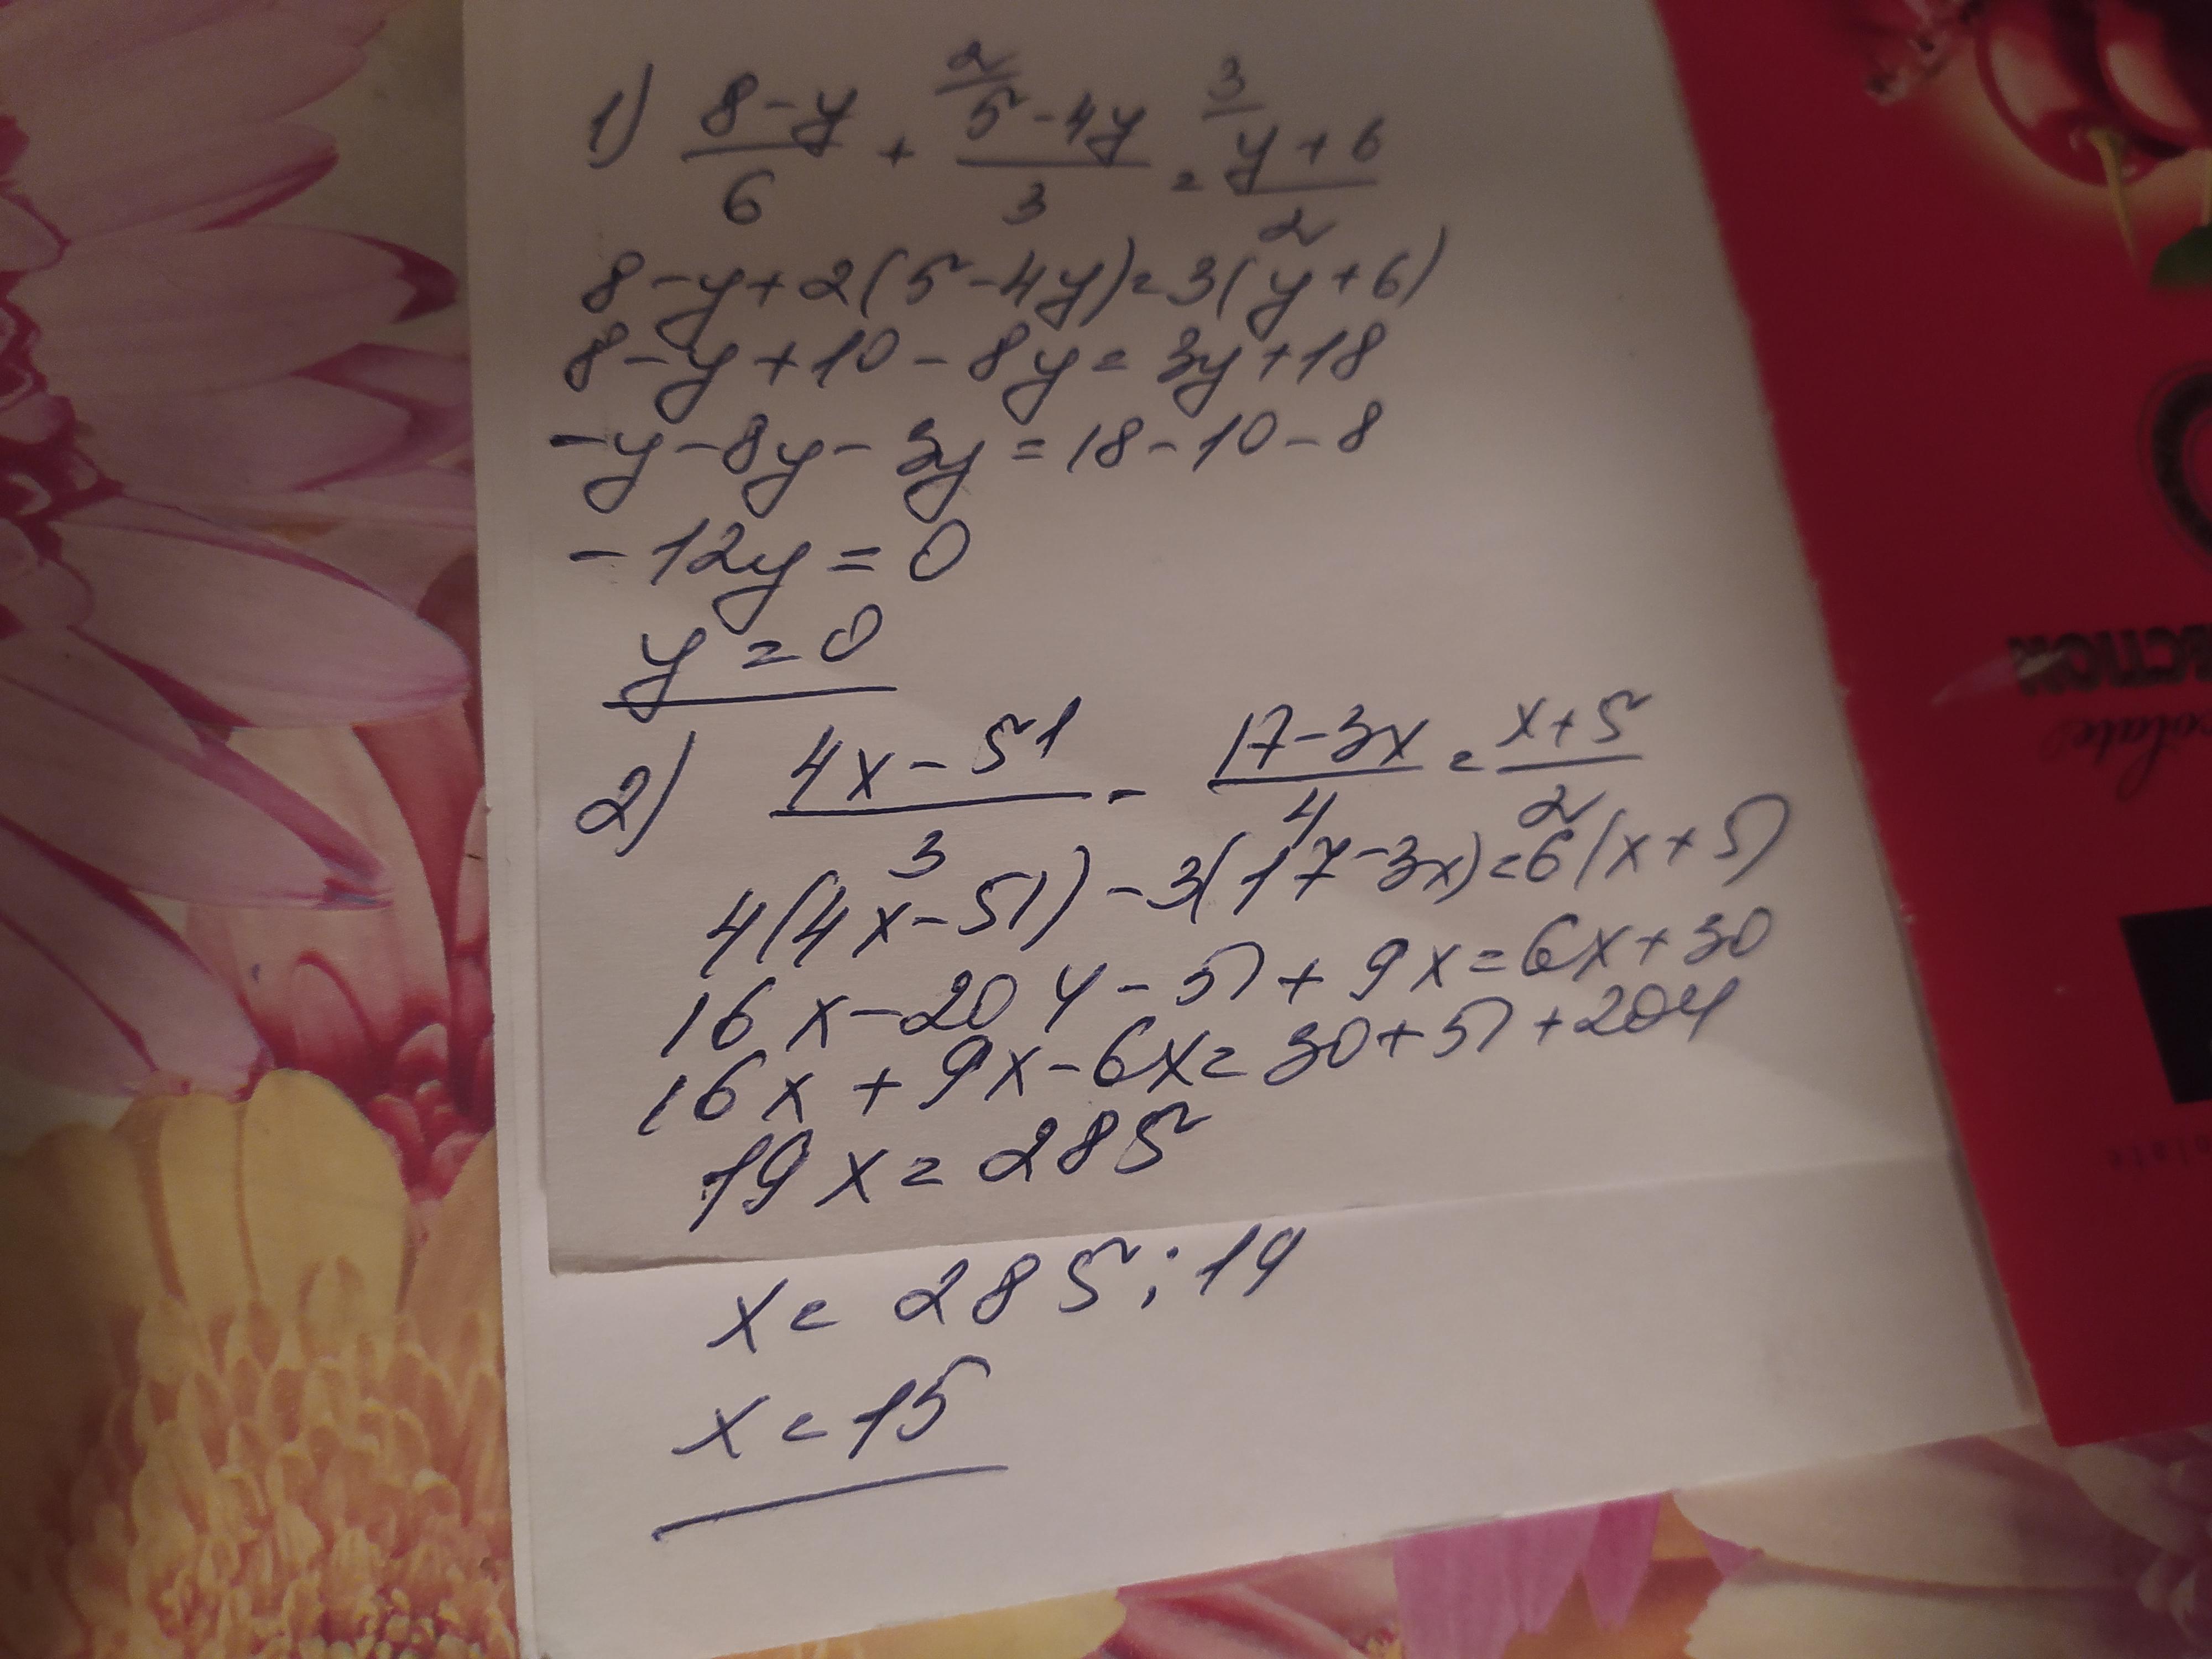 1) (8-y)/6 + (5-4y)/3 = (y+6)/2
2 3
8-y+2(5-4y)=3(y+6)
8-y+10-8y=3y+18
-y-8y-3y=18-10-8
-12y=0
y=0
2) (4x-51)/3 - (17-3x)/4 = (x+5)/2
4(4x-51)-3(17-3x)=6(x+5)
16x-204-51+9x=6x+30
16x+9x-6x=30+51+204
19x=285
x=285:19
x=15